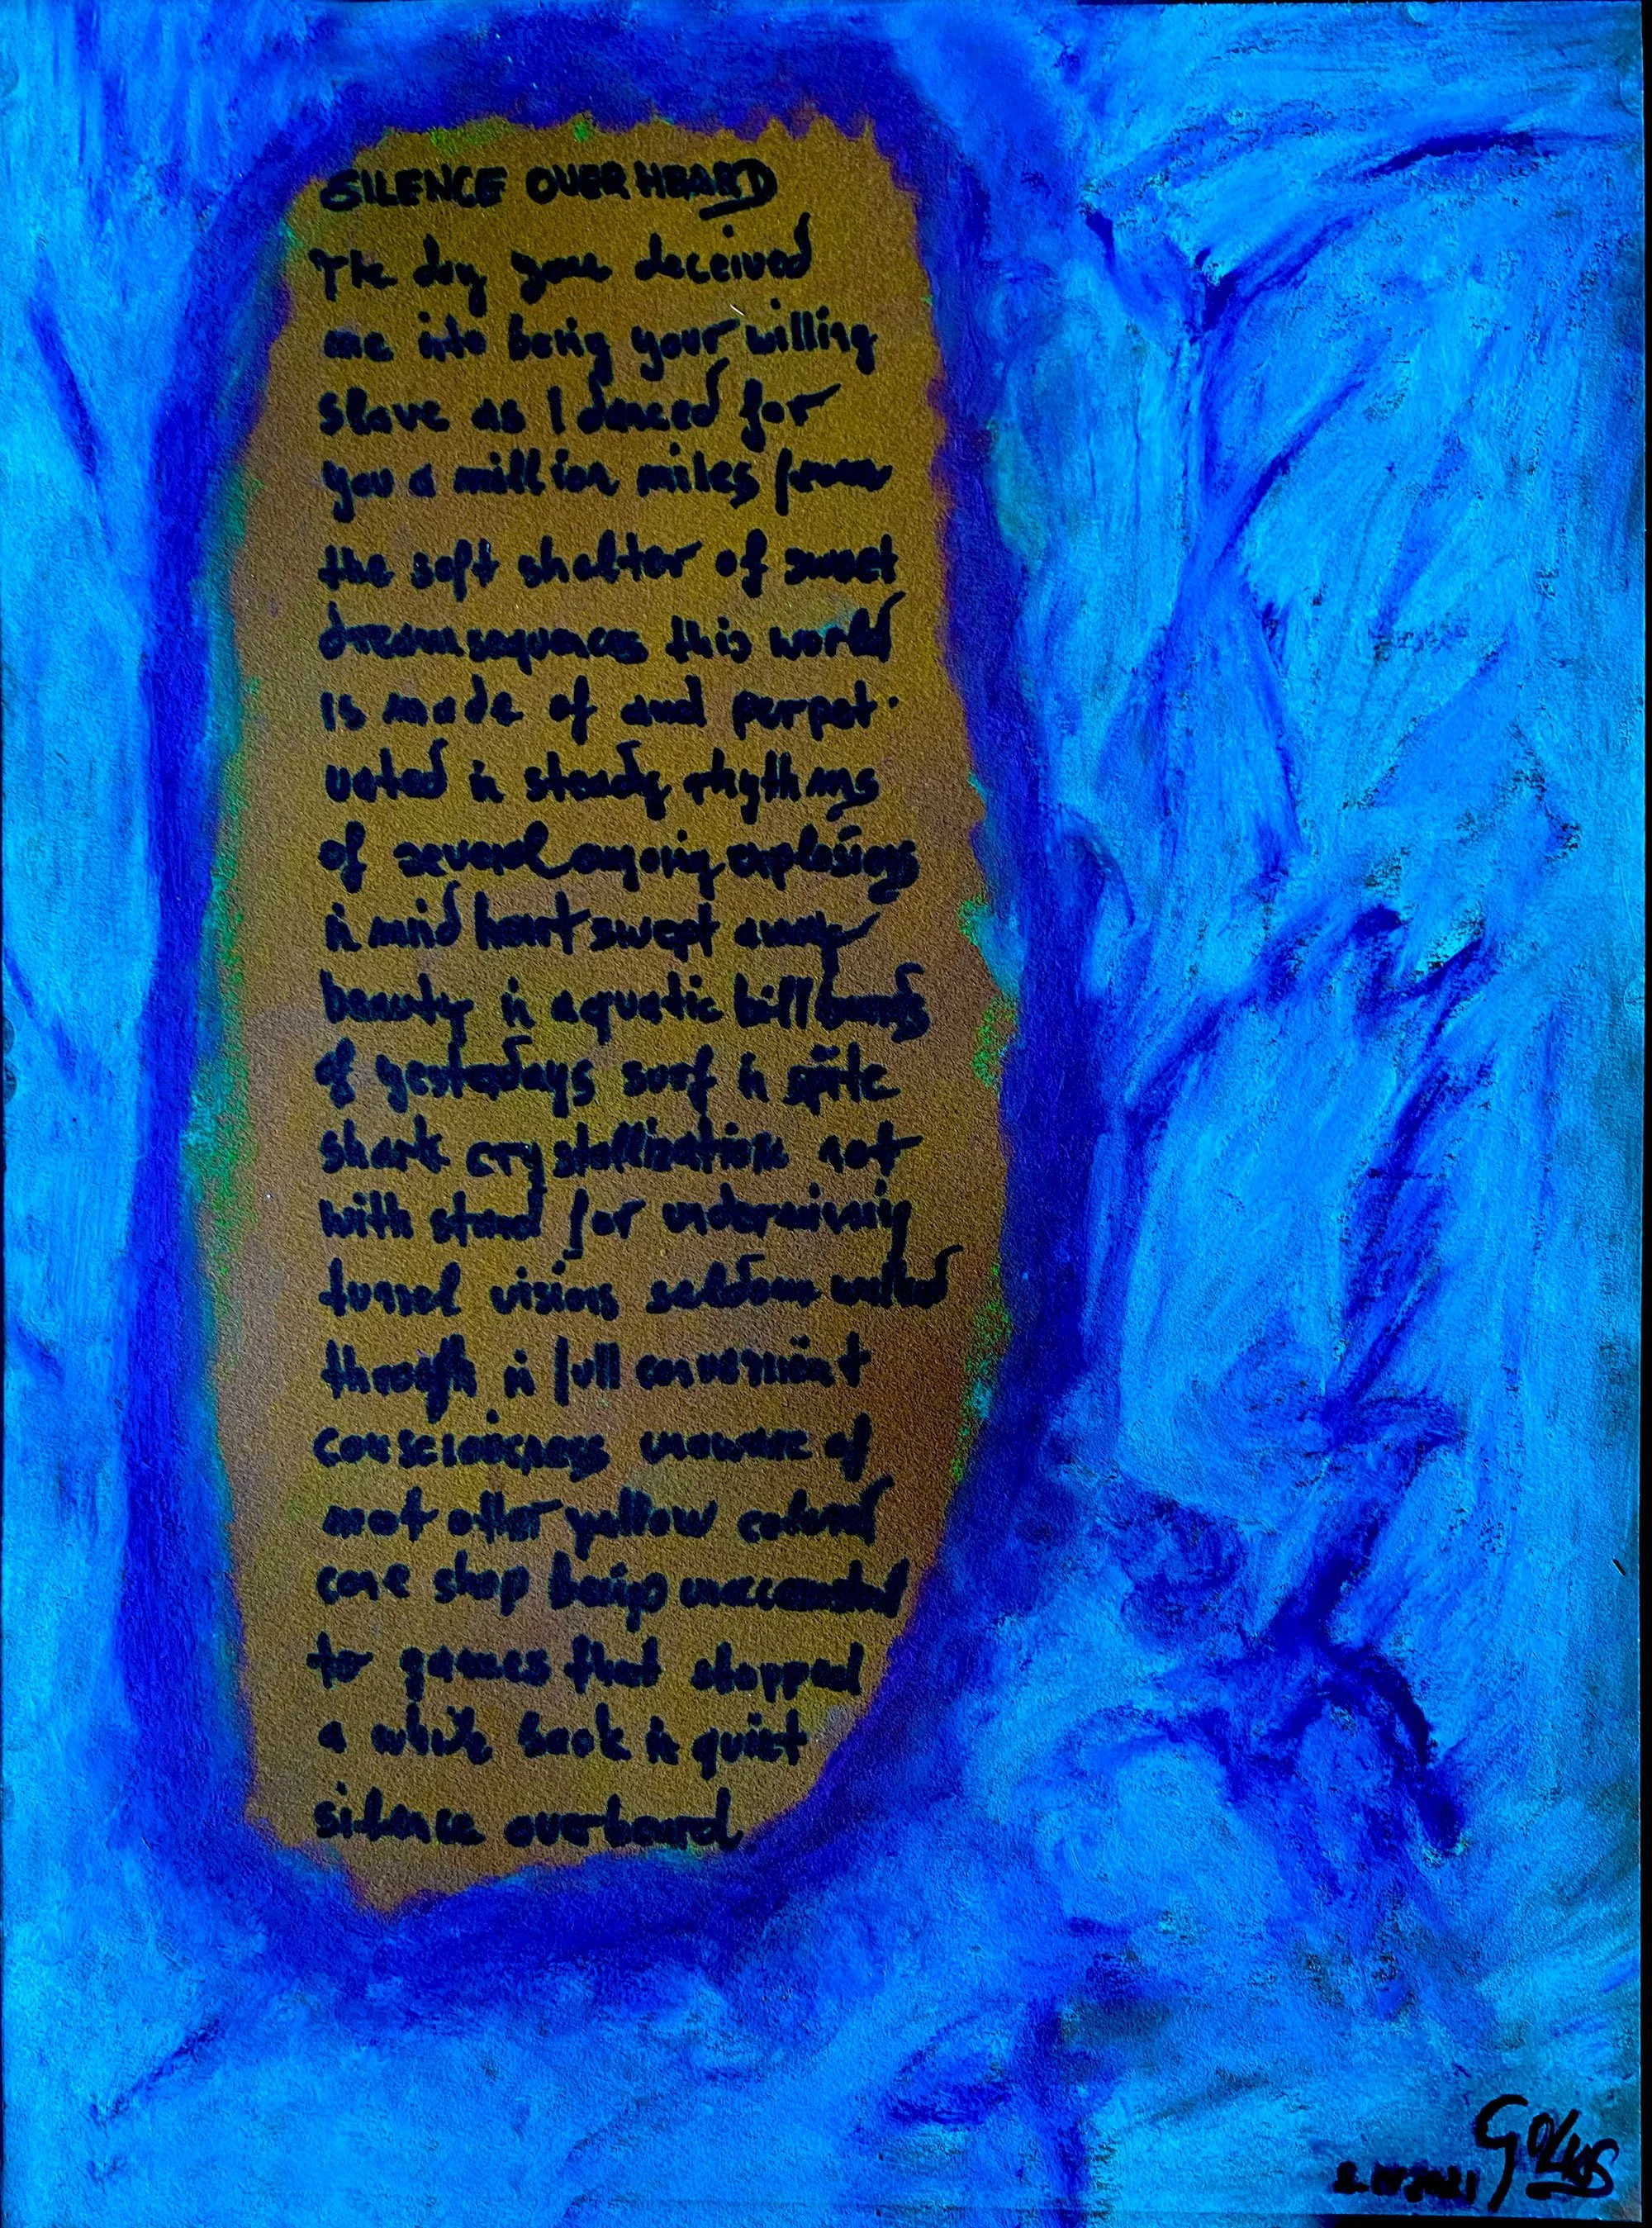 SILENCE OVERHEARD
The day you deceived
me into being your willing
slave as I danced for
you a million miles from
the soft shelter of sweet
dream sequences this world
is made of and perpet-
uated in steady rhythms
of several ongoing explosions
in mind heart swept away
beauty in aquatic billboards
of yesterdays surf in spite
shark crystallization not
with stand for undermining
tunnel visions seldom walked
through in full convenient
consciousness unaware of
most other yellow colored
shop being unaccounted
to games that stopped
a while back in quiet
silence overheard